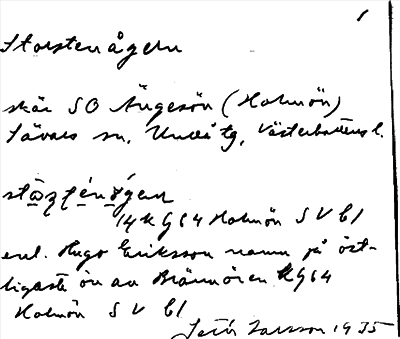 Storstenågern
skär SO Ängesön (Holmön)
Sävars sn, Umeå tg, Västerbottens l.
14 K G 64 Holmön SV b1
enl. Hugo Eriksson namn på öst-
ligaste ön av Brännören KG64
Holmön SV b1
Larsson 1935